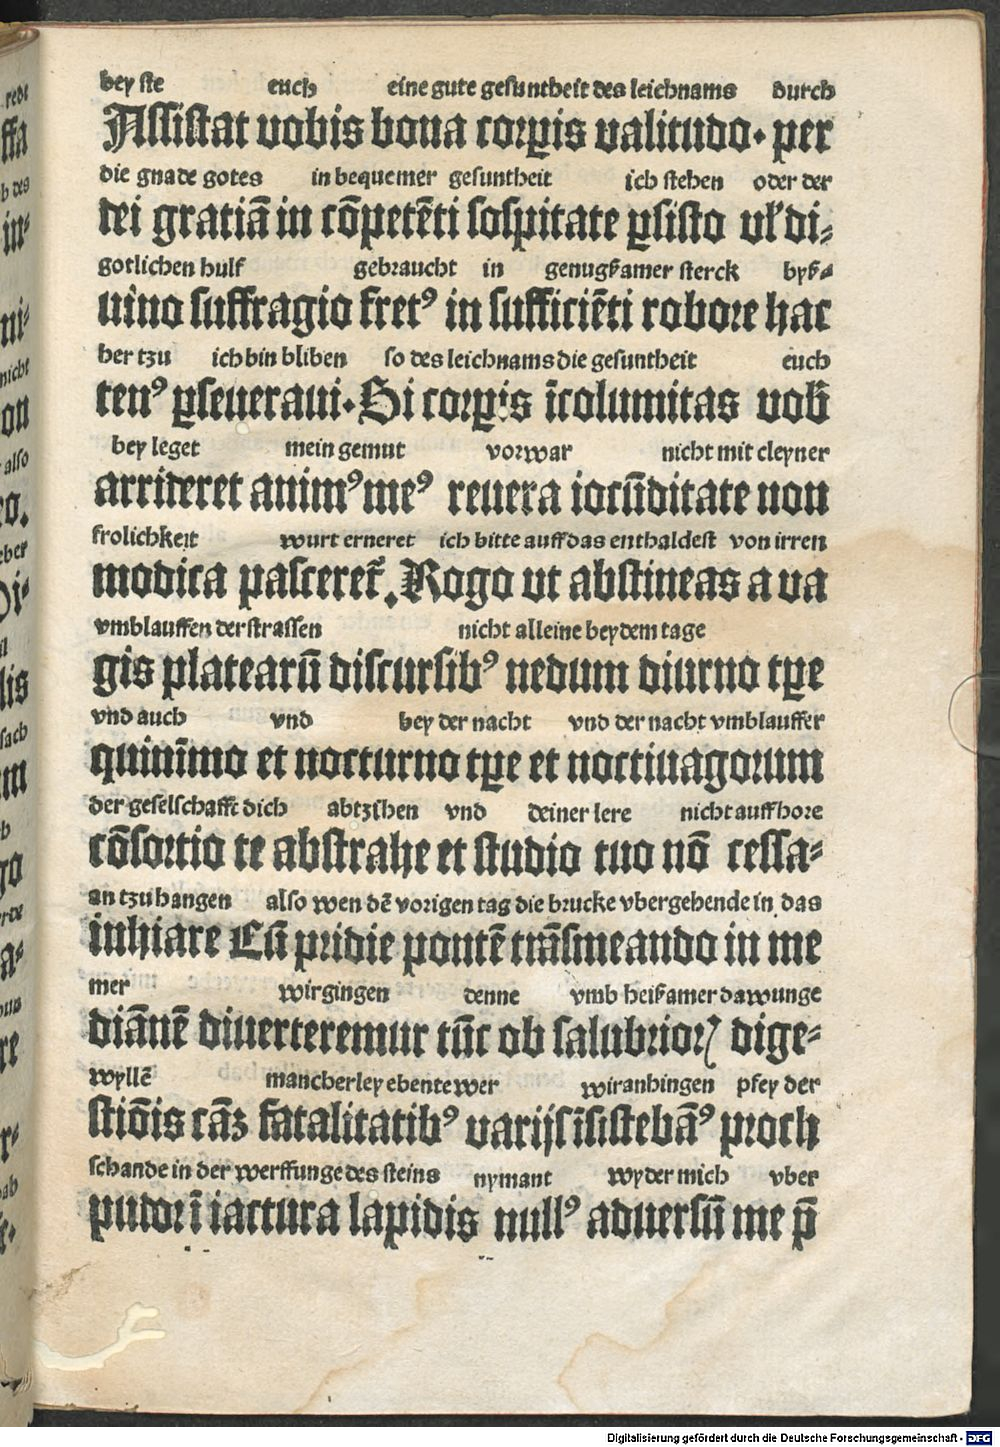 bey ste euch eine gute gesuntheit des leichnams durch
Assistat vobis bona corꝑis valitudo. per
die gnade gotes in bequemer gesuntheit ich stehen oder der
dei gratiā in cōpetēti sospitate ꝑsisto vł di⸗
gotlichen hulf gebraucht in genugßamer sterck byß⸗
uino suffragio fretꝰ in sufficiēti robore hac
her tzu ich bin bliben so des leichnams die gesuntheit euch
tenꝰ ꝑseueraui. Si corꝑis īcolumitas vob̄
bey leget mein gemut vorwar nicht mit cleyner
arrideret animꝰ meꝰ reuera iocūditate non
frolichkeit wurt erneret ich bitte auff das enthaldest von irren
modica pasceret᷑. Rogo vt abstineas a va
vmblauffen der strassen nicht alleine bey dem tage
gis platearū discursibꝰ nedum diurno tꝑe
vnd auch vnd bey der nacht vnd der nacht vmblauffer
quinīmo et nocturno tꝑe et noctiuagorum
der geselschafft dich abtzihen vnd deiner lere nicht auffhore
cōsortio te abstrahe et studio tuo nō cessa⸗
an tzu hangen also wen dē vorigen tag die brucke vbergehende in das
inhiare Cū pridie pontē trāsmeando in me
mer wir gingen denne vmb heilßamer dawunge
diānē diuerteremur tūc ob salubrioꝝ dige⸗
wyllē mancherley ebentewer wir anhingen pfey der
stiōis cāꝫ fatalitatibꝰ varijs īsistebāꝰ proch
schande in der werffunge des steins nymant wyder mich vber
pudor ī iactura lapidis nullꝰ aduersū me p̄
Digitalisierung gefördert durch die Deutsche Forschungsgemeinschaft - DFG